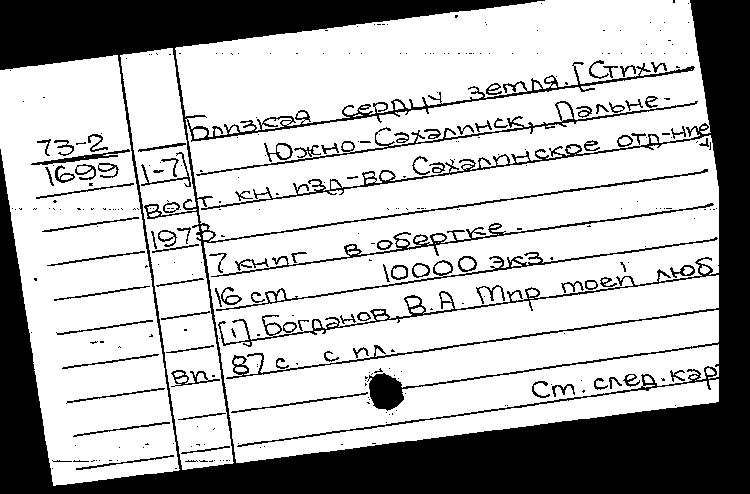 Близкая сердцу земля. [Стихи.
73-2
1699
1-7]. Южно-Сахалинск, Дальне-
вост. кн. изд-во. Сахалинское отд-ние,
1973.
7 книг в обертке.
16 см. 10000 экз.
[1]. Богданов, В.А. Мир моей люб
87 с. с ил.
вп.
См. след. кар